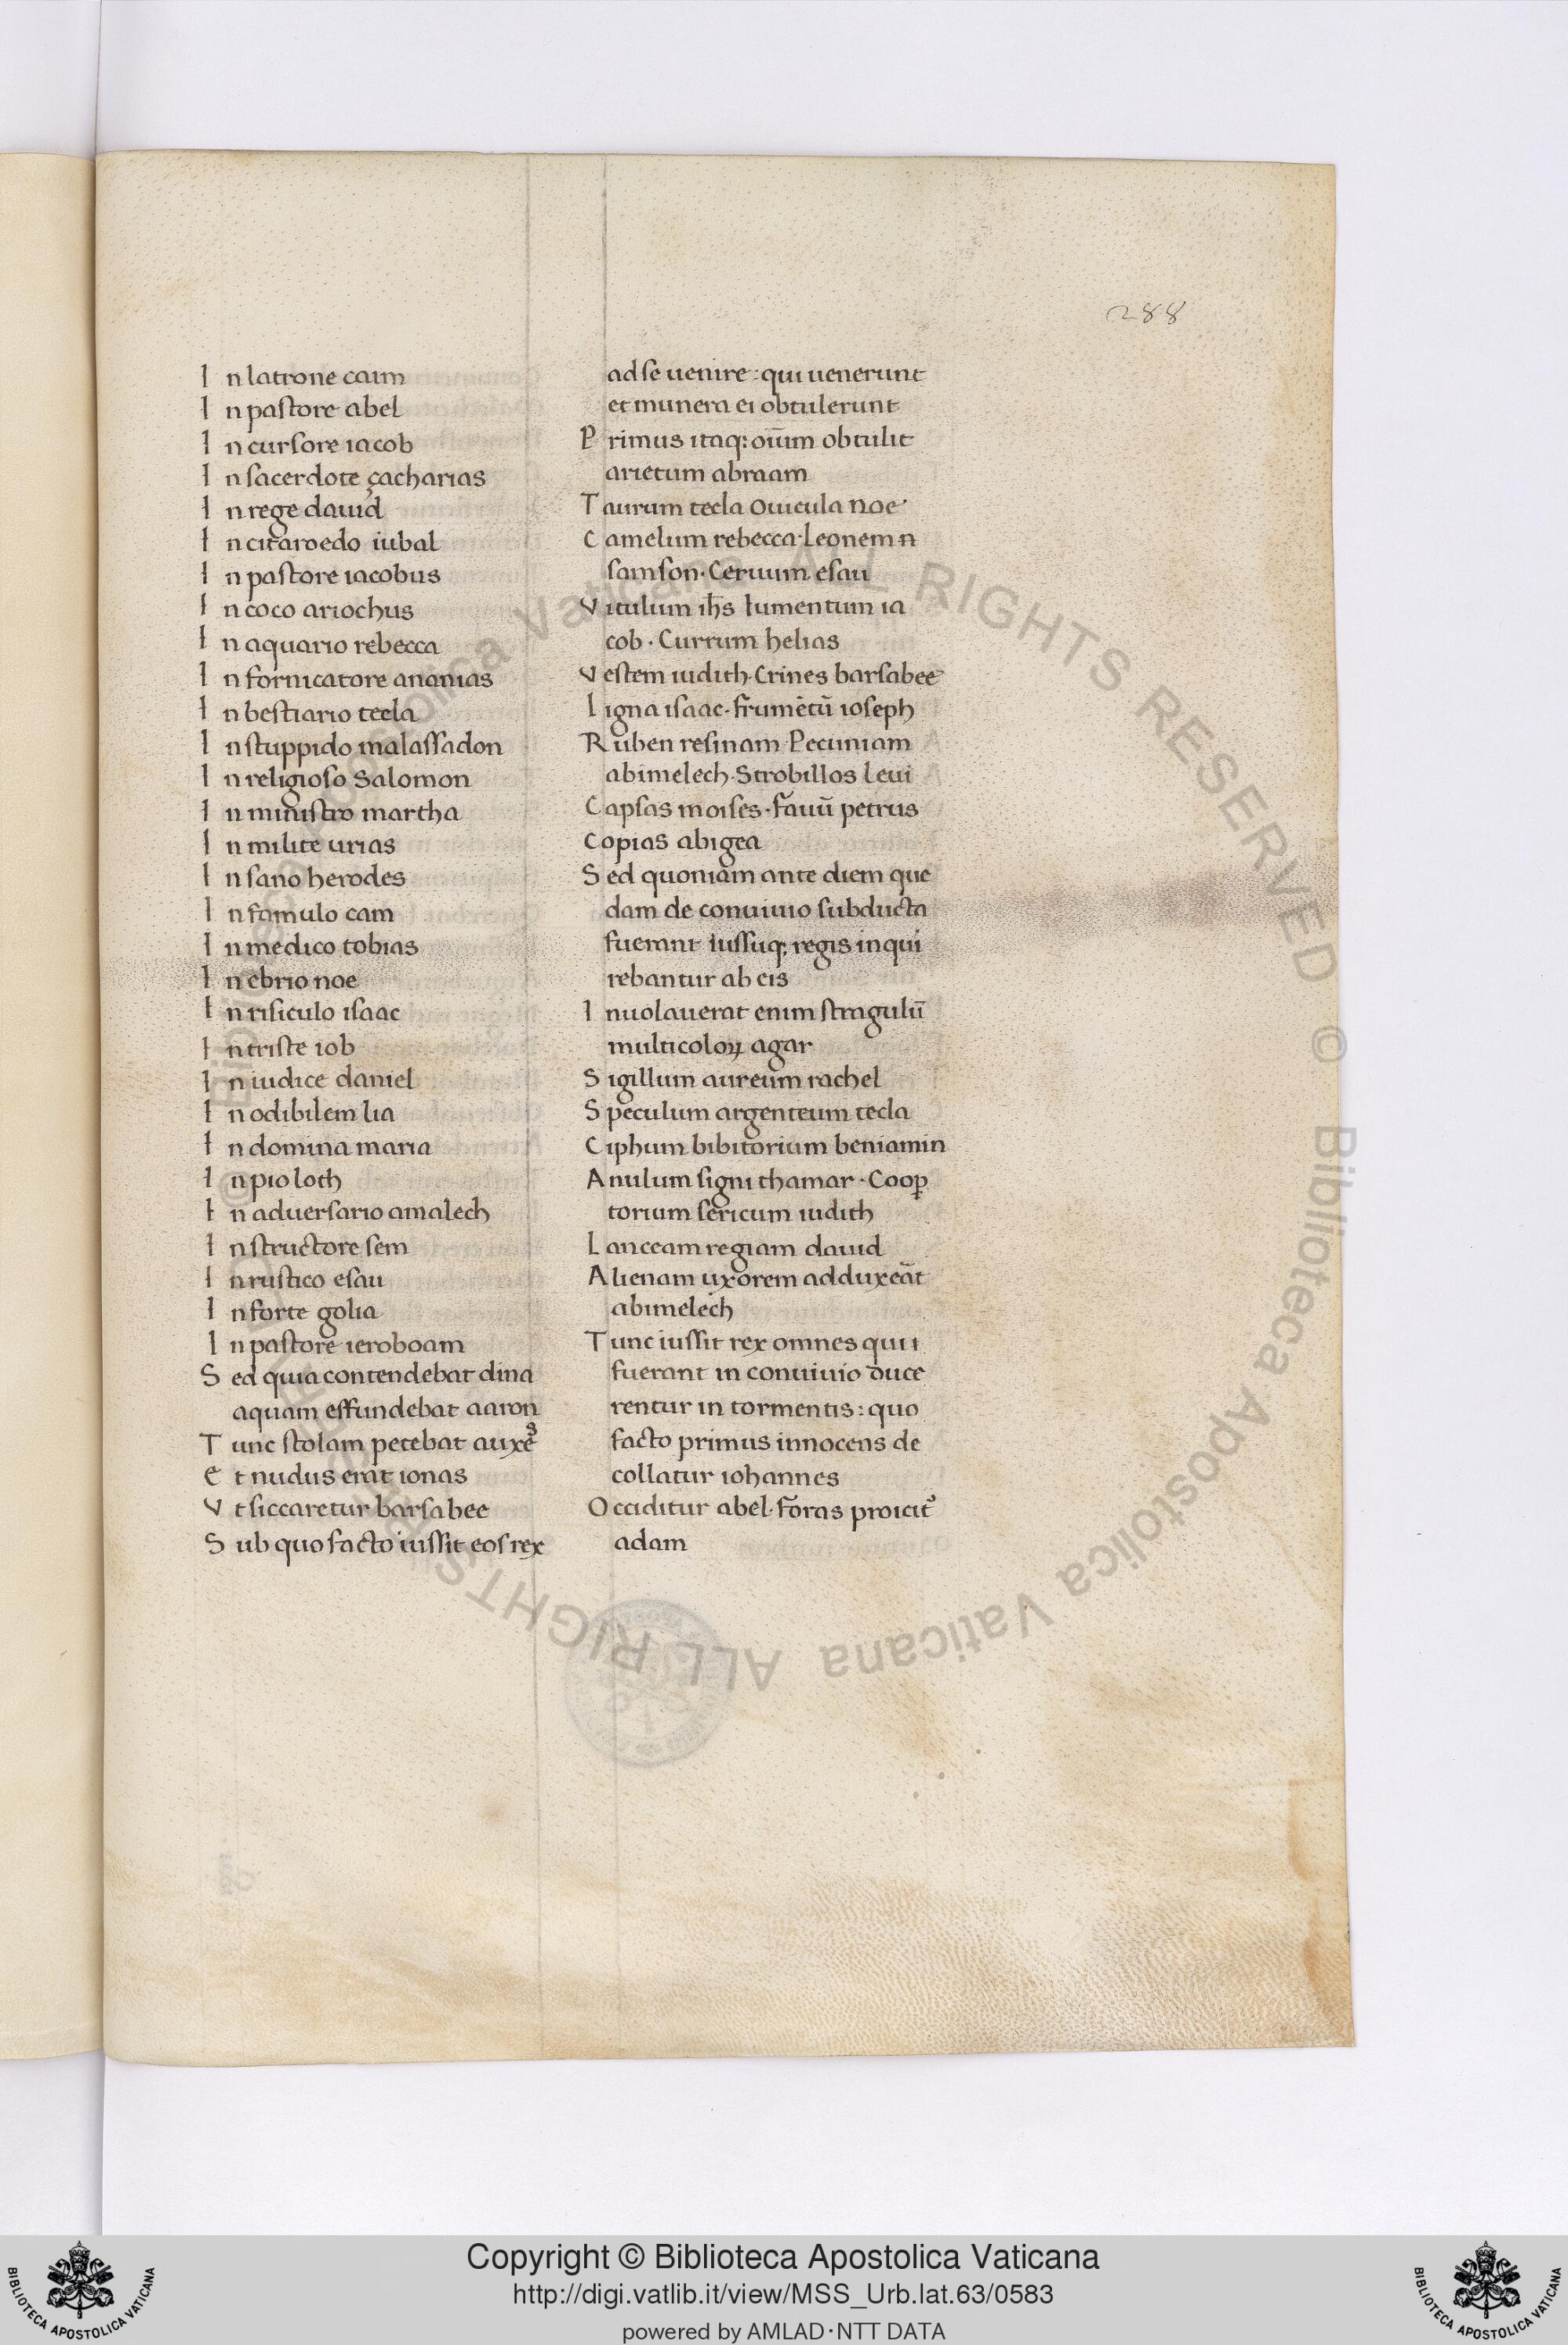 288
In latrone caim
In pastore abel
In cursore iacob
In sacerdote çacharias
In rege dauid
In citaroedo iubal
In pastore iacobus
In coco ariochus
In aquario rebecca
In fornicatore ananias
In bestiario tecla
In stuppido malassadon
In religioso Salomon
In ministro martha
In milite urias
In sano herodes
In famulo cam
In medico tobias
In ebrio noe
In risiculo isaac
In triste iob
In iudice daniel
In odibilem lia
In domina maria
In pio loth
In aduersario amalech
In structore sem
In rustico esau
In forte golia
In pastore ieroboam
Sed quia contendebat dina
aquam effundebat aaron
Tunc stolam petebat auxeꝰ
Et nudus erat ionas
Vt siccaretur barsabee
Sub quo facto iussit eos rex
ad se uenire: qui uenerunt
et munera ei obtulerunt
Primus itaq; oīum obtulit
arietum abraam
Taurum tecla Ouicula noe
Camelum rebecca· Leonem n
samson· Ceruum esau
Vitulum ihs̄ Iumentum ia
cob· Currum helias
Vestem iudith· Crines barsabee
Ligna isaac· frumētū ioseph
Ruben resinam Pecuniam
abimelech· Strobillos Leui
Capsas moises· fauū petrus
Copias abigea
Sed quoniam ante diem que
dam de conuiuio subducta
fuerant iussuq; regis inqui
rebantur ab eis
Inuolauerat enim stragulū
multicoloꝝ agar
Sigillum aureum rachel
Speculum argenteum tecla
Ciphum bibitorium beniamin
Anulum signi thamar· Coop̄
torium sericum iudith
Lanceam regiam dauid
Alienam uxorem adduxeāt
abimelech
Tunc iussit rex omnes qui i
fuerant in conuiuio duce
rentur in tormentis: quo
facto primus innocens de
collatur iohannes
Occiditur abel· foras proicitꝰ
adam
© Biblioteca Apostolica Vaticana ALL RIGHTS RESERVED © Biblioteca Apostolica Vaticana ALL RIGHTS
Copyright © Biblioteca Apostolica Vaticana
http://digi.vatlib.it/view/MSS_Urb.lat.63/0583
powered by AMLAD·NTT DATA
BIBLIOTECA APOSTOLICA VATICANA
BIBLIOTECA APOSTOLICA VATICANA